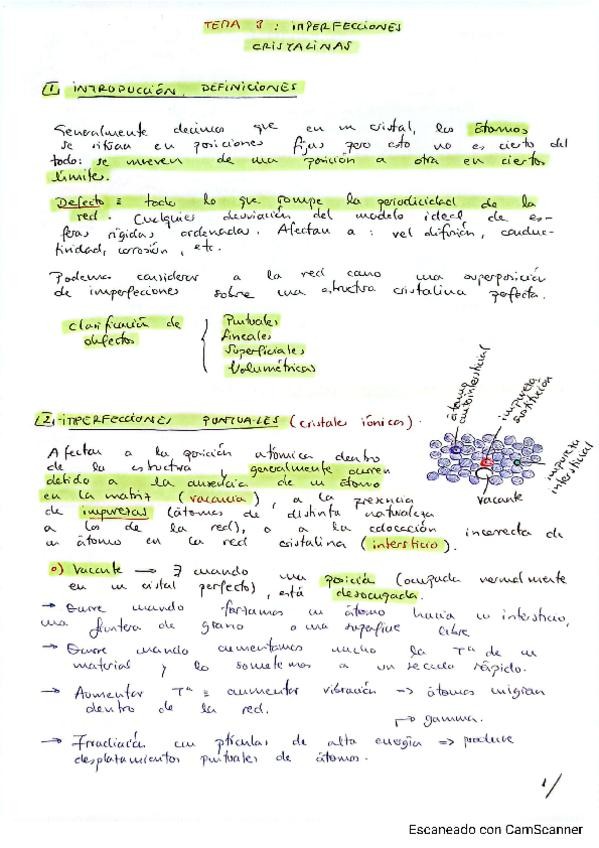 TEMA 3: IMPERFECCIONES
CRISTALINAS
1 INTRODUCCIÓN, DEFINICIONES
Generalmente decimos que en un cristal, los átomos
se sitúan en posiciones fijas pero esto no es cierto del
todo: se mueven de una posición a otra en ciertos
límites.
Defecto ≡ todo lo que rompe la periodicidad de la
red. Cualquier desviación del modelo ideal de es-
feras rígidas ordenadas. Afectan a: vel difusión, conduc-
tividad, corrosión, etc.
Podemos considerar a la red como una superposición
de imperfecciones sobre una estructura cristalina perfecta.
Clasificación de
defectos
Puntuales
Lineales
Superficiales
Volumétricas
2 -IMPERFECCIONES PUNTUALES (cristales iónicos).
átomo autointersticial
impureza sustitución
impureza intersticial
vacante
Afectan a la posición atómica dentro
de la estructura y generalmente ocurren
debido a la ausencia de un átomo
en la matriz (vacancia), a la presencia
de impurezas (átomos de distinta naturaleza
a los de la red), o a la colocación incorrecta de
un átomo en la red cristalina (intersticio).
o) Vacante → ∃ cuando una posición (ocupada normalmente
en un cristal perfecto), está desocupada.
→ Ocurre cuando forzamos un átomo hacia un intersticio,
una frontera de grano o una superficie libre
→ Ocurre cuando aumentamos mucho la Tª de un
material y lo sometemos a un secado rápido.
→ Aumentar Tª ≡ aumentar vibración → átomos migran
dentro de la red.
→ gamma.
→ Irradiación con ptículas de alta energía => produce
desplazamientos puntuales de átomos.
1/
Escaneado con CamScanner